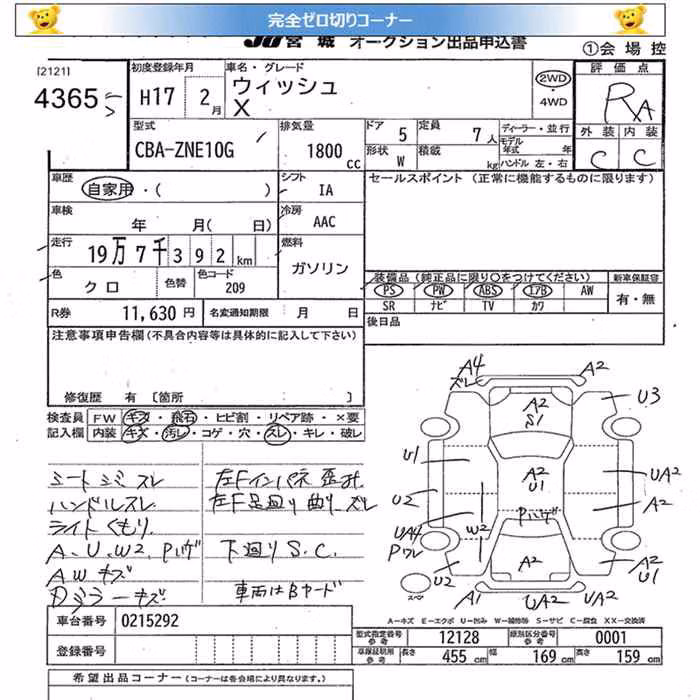 完全ゼロ切りコーナー
JU宮城 オークション出品申込書
①会場控
[2121]
4365
初度登録年月
H17 2月
車名・グレード
ウィッシュ
X
2WD
・4WD
評価点
RA
外装 内装
C C
型式
CBA-ZNE10G
排気量
1800cc
ドア 5
定員 7人
形状 W
積載 kg
ディーラー・並行
モデル年式 年
ハンドル 左・右
車歴
自家用・( )
シフト
IA
セールスポイント (正常に機能するものに限ります)
車検
年 月( 日)
冷房
AAC
走行
19万7千392km
燃料
ガソリン
色
クロ
色替
色コード
209
装備品 (純正品に限り○をつけてください)
PS PW ABS エアB AW
SR ナビ TV カワ
新車保証書
有・無
R券 11,630円
名変通知期限 月 日
後日品
注意事項申告欄(不具合内容等は具体的に記入して下さい)
修復歴 有 [箇所 ]
検査員 FW キズ・飛石・ヒビ割・リペア跡・×要
記入欄 内装 キズ・汚レ・コゲ・穴・スレ・キレ・破レ
シートシミスレ
ハンドルスレ
ライトくもり
A、U、W2、Pハゲ
AWキズ
ドラミラーキズ
左Fインパネ歪み
左F足廻り曲り、ズレ
下廻りS.C.
車両はBヤード
A4
ズレ
A2
A2
S1
U3
U1
A2
U1
UA2
U2
A2
UA4
Pワレ
W2
Pハゲ
A2
U2
A2
U1
スペア
A1
UA2
UA2
A=キズ E=エクボ U=凹み W=補修跡 S=サビ C=腐食 XX=交換済
車台番号 0215292
登録番号
型式指定番号 参考 12128
類別区分番号 参考 0001
車検証記載 参考 長さ 455cm 幅 169cm 高さ 159cm
希望出品コーナー (コーナーは各会場により異なります。)